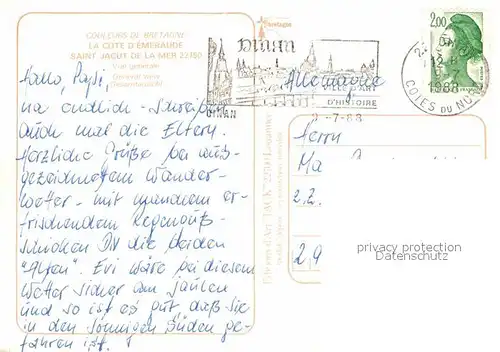 COULEURS DE BRETAGNE
LA COTE D'EMERAUDE
SAINT JACUT DE LA MER 22750
Vue générale
Hallo,
na endlich - schreiben
auch mal die Eltern.
Herzliche Grüße bei aus-
gezeichnetem Wander-
wetter - mit manchem er-
frischendem Regenguß -
schicken Dir die beiden
"Alten". Evi wäre bei diesem
Wetter sicher am
und so ist es gut, daß sie
in den sonnigen Süden ge-
fahren ist!
bretagne
DINAN
VILLE D'ART
D'HISTOIRE
DINAN
Allemagne
2-7-88
2,00
1988
COTES DU NORD
Herrn
Ma
2.2.
29
privacy protection
Datenschutz